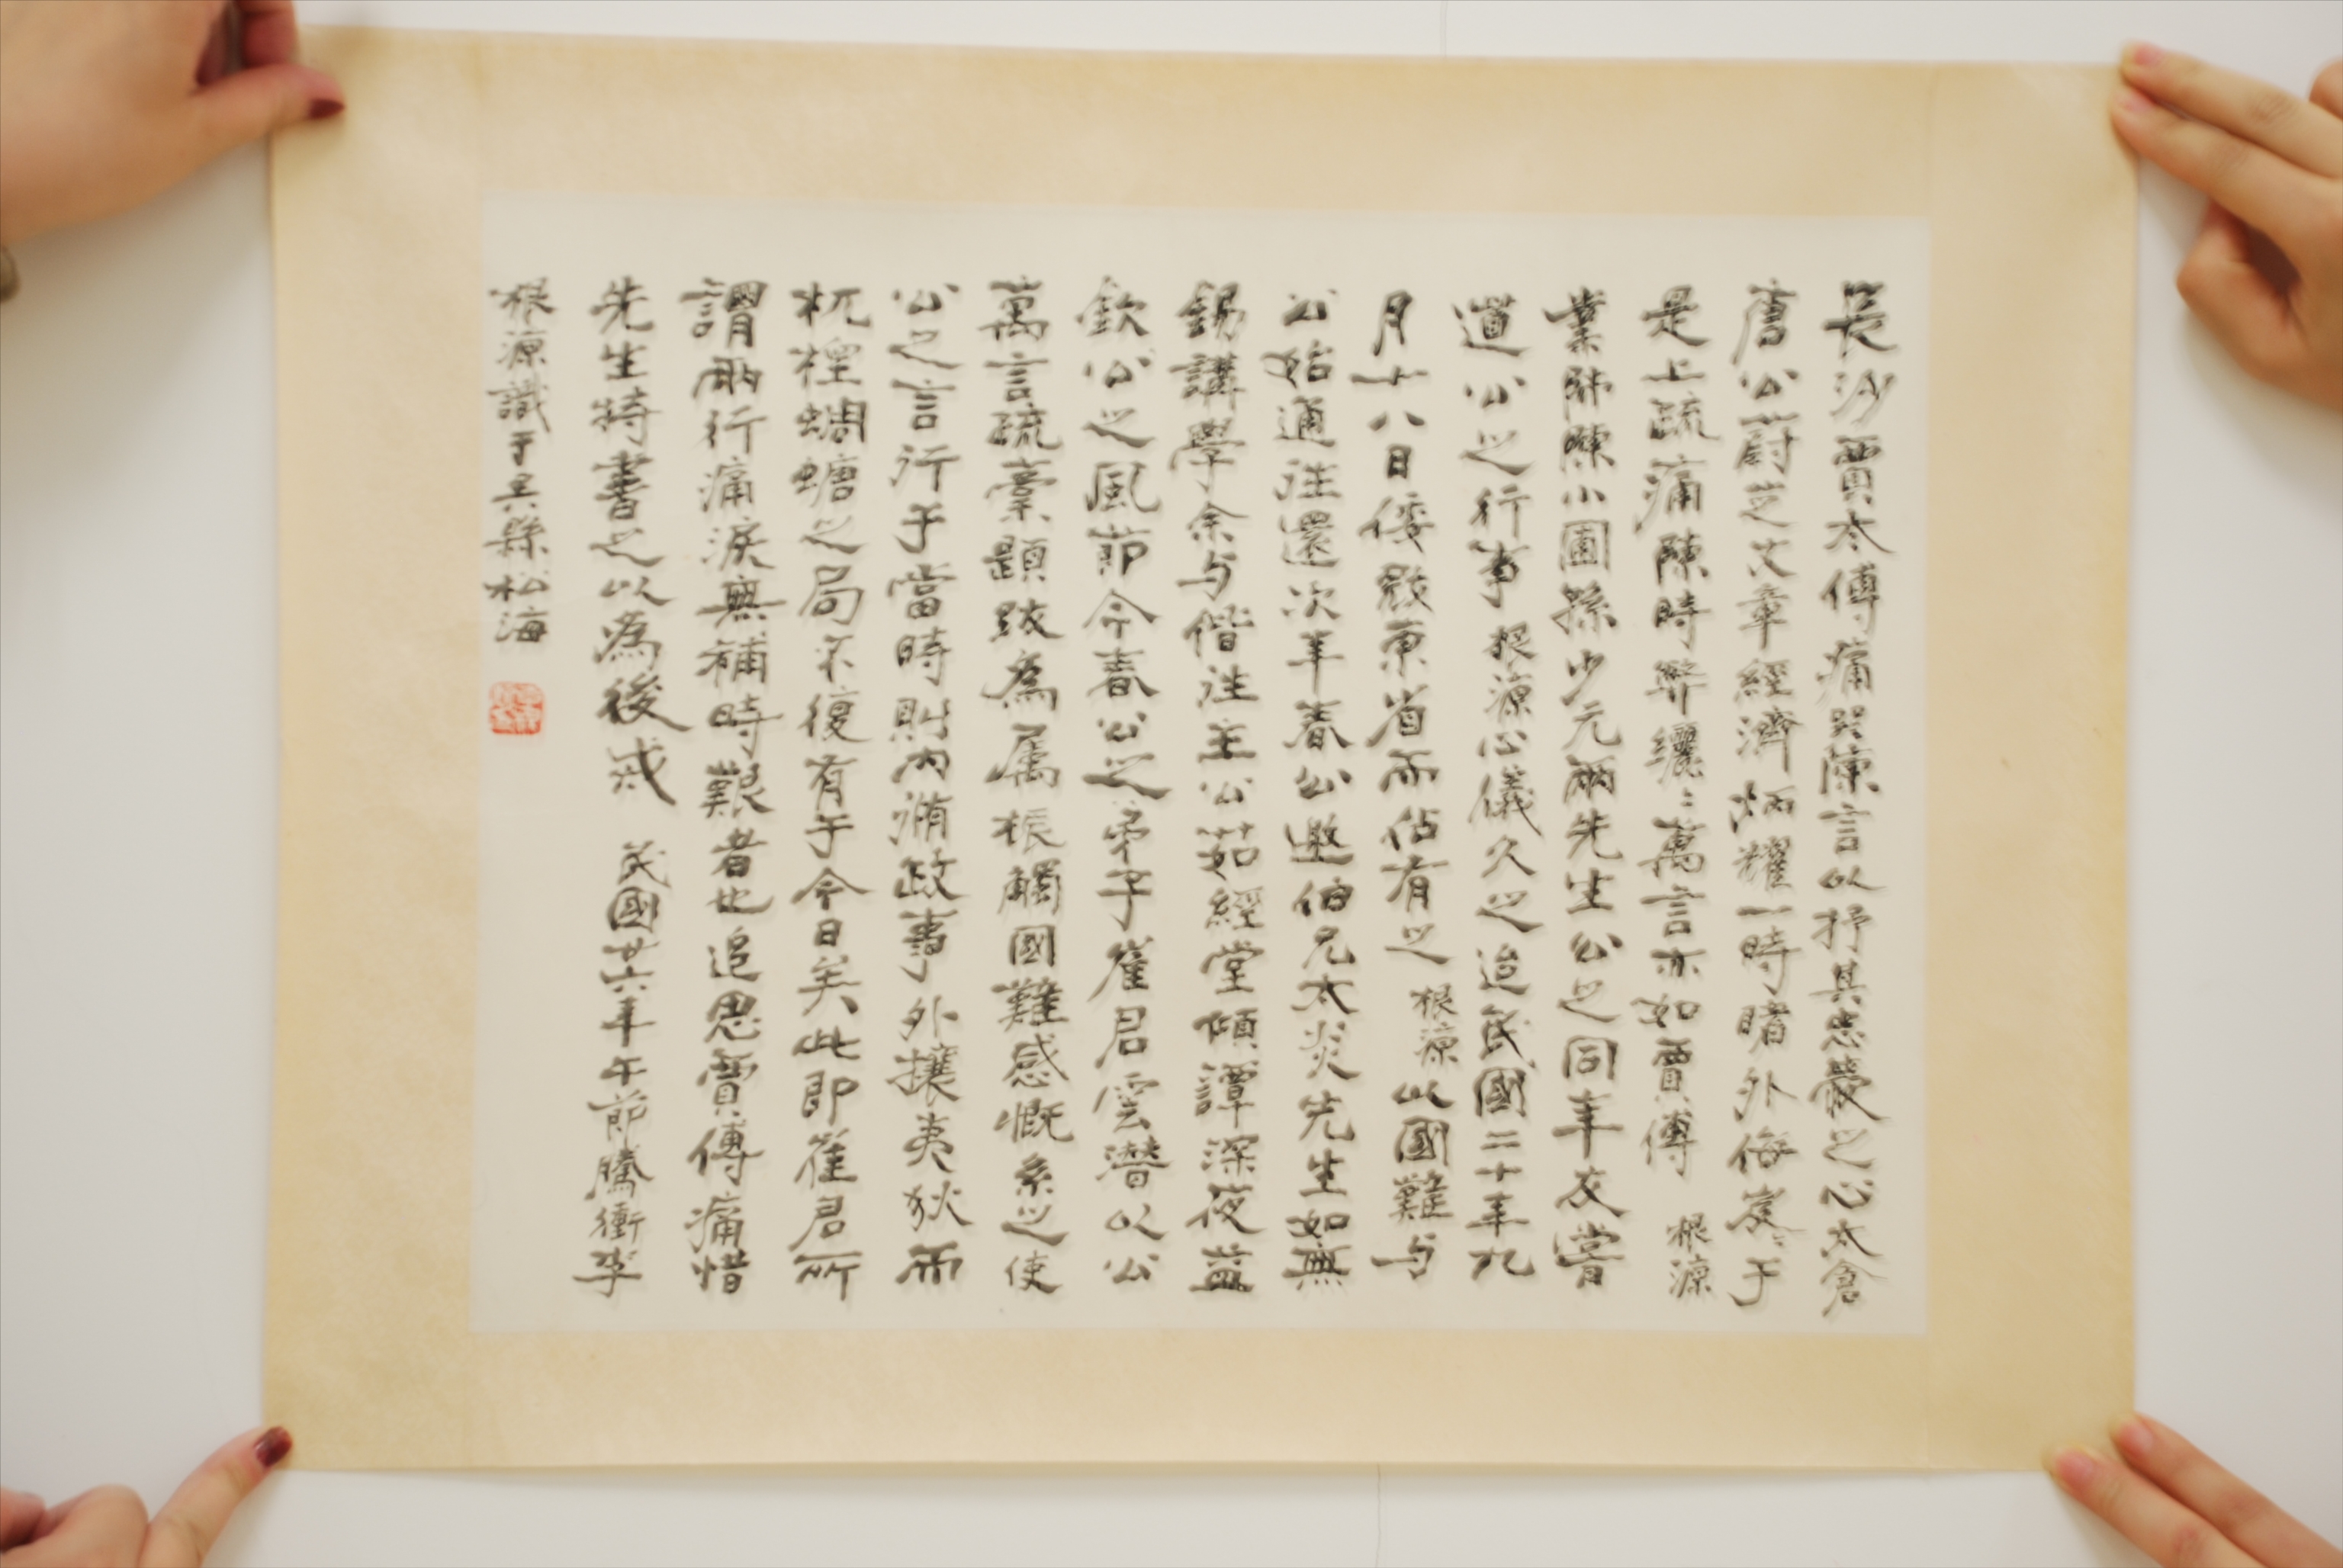 長沙賈太傅痛哭陳言以抒其忠愛之心太倉
唐公蔚芝文章經濟炳耀一時睹外侮岌々于
是上疏痛陳時弊纚々萬言亦如賈傅 根源
業師陳小圃孫少元兩先生公之同年友嘗
道公之行事根源心儀久之迨民國二十年九
月十八日倭殘東省而佔有之根源以國難与
公始通往還次年春公邀伯兄太炎先生如無
錫講學余与偕往主公茹經堂傾譚深夜益
欽公之風節今春公之弟子崔君雲潛以公
萬言疏稾題跋為屬振觸國難感慨系之使
公之言行于當時則內脩政事外攘夷狄而
杌楻蜩螗之局不復有于今日矣此即崔君所
謂兩行痛淚無補時艱者也追思賈傅痛惜
先生特書之以為後戒 民國廿六年午節騰衝李
根源識于吳縣松海